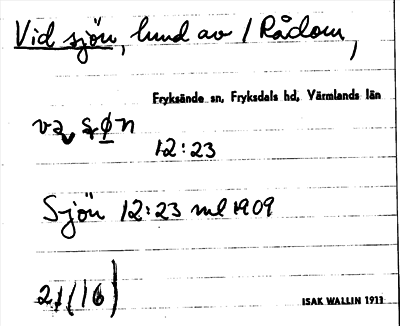 Vid sjön, lund av / Rådom,
Fryksände sn, Fryksdals hd, Värmlands län
12:23
Sjön 12:23 ml 1909
21 (16)
ISAK WALLIN 1911